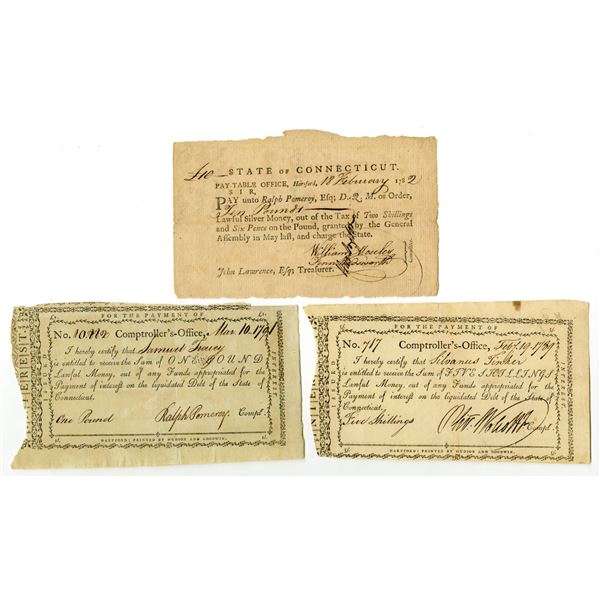 £10 STATE OF CONNECTICUT.
PAY-TABLE OFFICE, Hartford, 18 February 1782
SIR,
PAY unto Ralph Pomeroy, Esq; D. Q. M. or Order,
Ten Pounds
Lawful Silver Money, out of the Tax of Two Shillings
and Six Pence on the Pound, granted by the General
Assembly in May last, and charge the State.
William Moseley
Wadsworth
John Lawrence, Esq; Treasurer.
FOR THE PAYMENT OF
INTEREST.
No. Comptroller's-Office, Mar. 10. 1791
I hereby certify that Samuel Tracy
is entitled to receive the Sum of ONE POUND
Lawful Money, out of any Funds appropriated for the
Payment of interest on the liquidated Debt of the State of
Connecticut.
One Pound Ralph Pomeroy. Compt.
HARTFORD: PRINTED BY HUDSON AND GOODWIN.
FOR THE PAYMENT OF
INTEREST.
No. 717 Comptroller's-Office, Feby. 19 1789
I hereby certify that Silvanus Tinker
is entitled to receive the Sum of FIVE SHILLINGS
Lawful Money, out of any Funds appropriated for the
Payment of interest on the liquidated Debt of the State of
Connecticut.
Five Shillings Compt.
HARTFORD: PRINTED BY HUDSON AND GOODWIN.